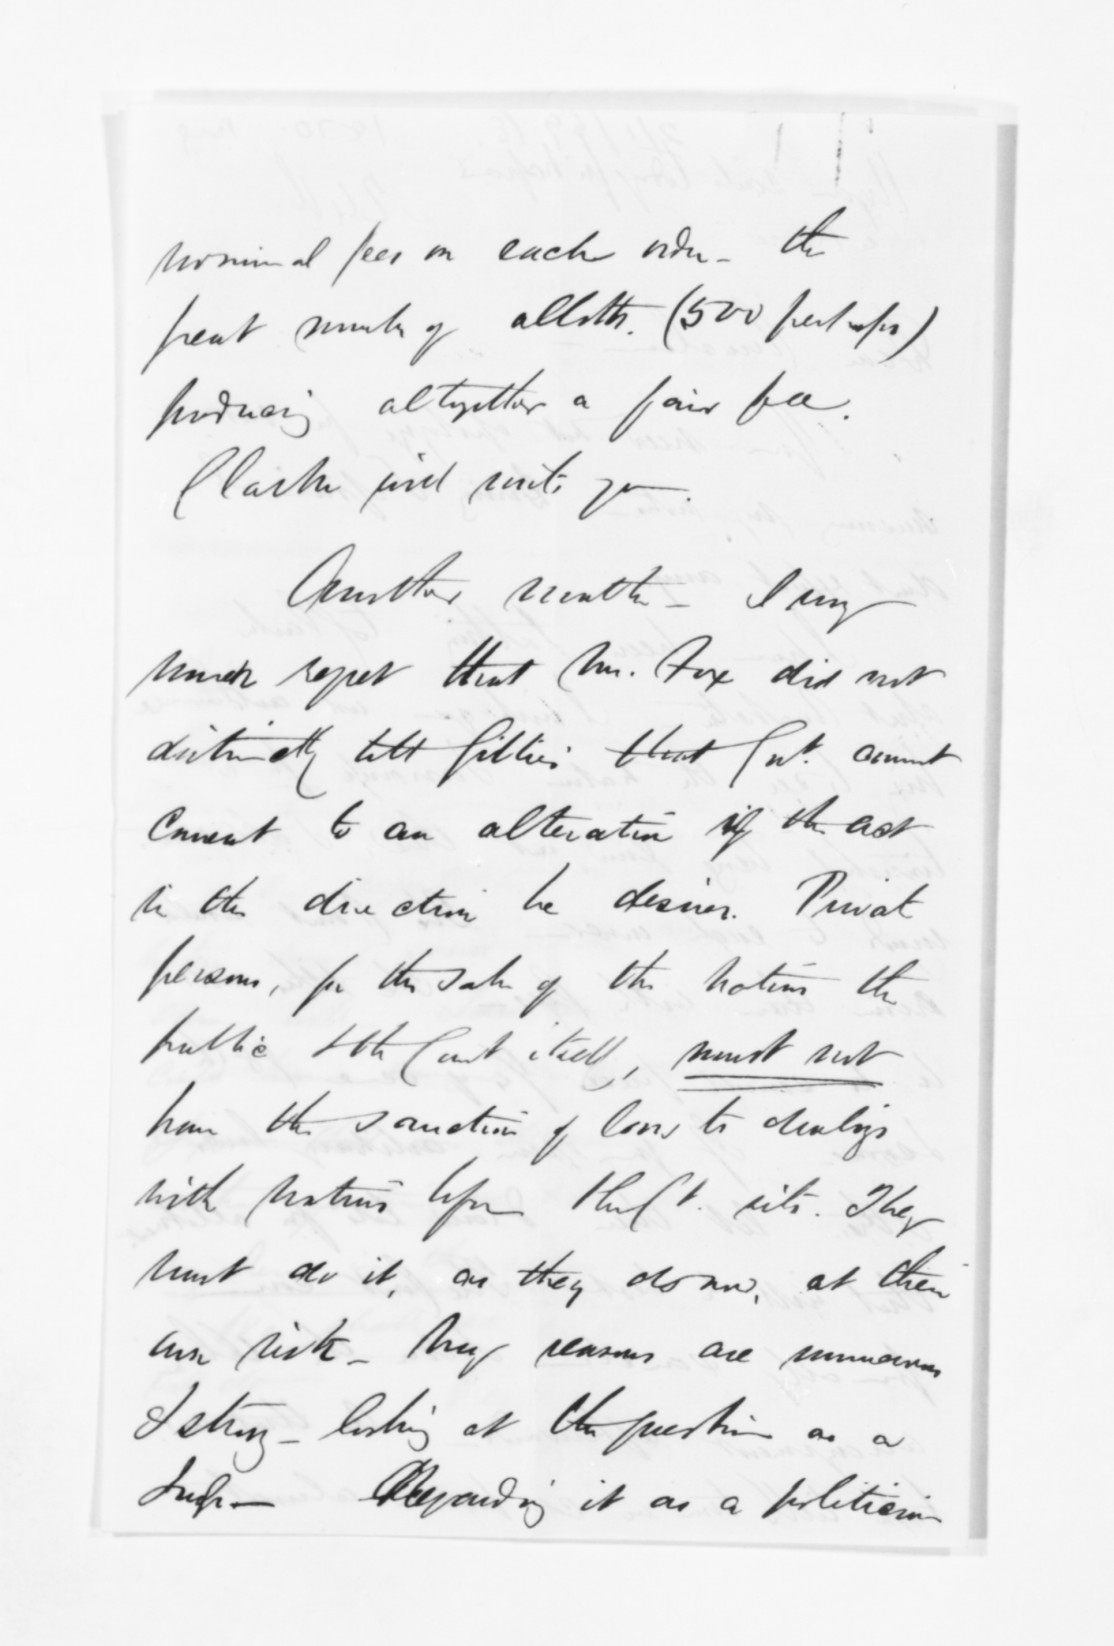 nominal fees on each order - the
great number of allotts. (500 perhaps)
producing altogether a fair fee.
Clarke will write you.
Another matter - I very
much regret that Mr. Fox did not
distinctly tell Gillies that Govt. cannot
consent to an alteration of the act
in the direction he desires. Private
persons, for the sake of the natives the
public & the Court itself, must not
have the sanction of law to dealings
with natives before the Ct. sits. They
must do it, as they do now, at their
own risk - My reasons are numerous
& strong - looking at the question as a
Judge - Regarding it as a politician